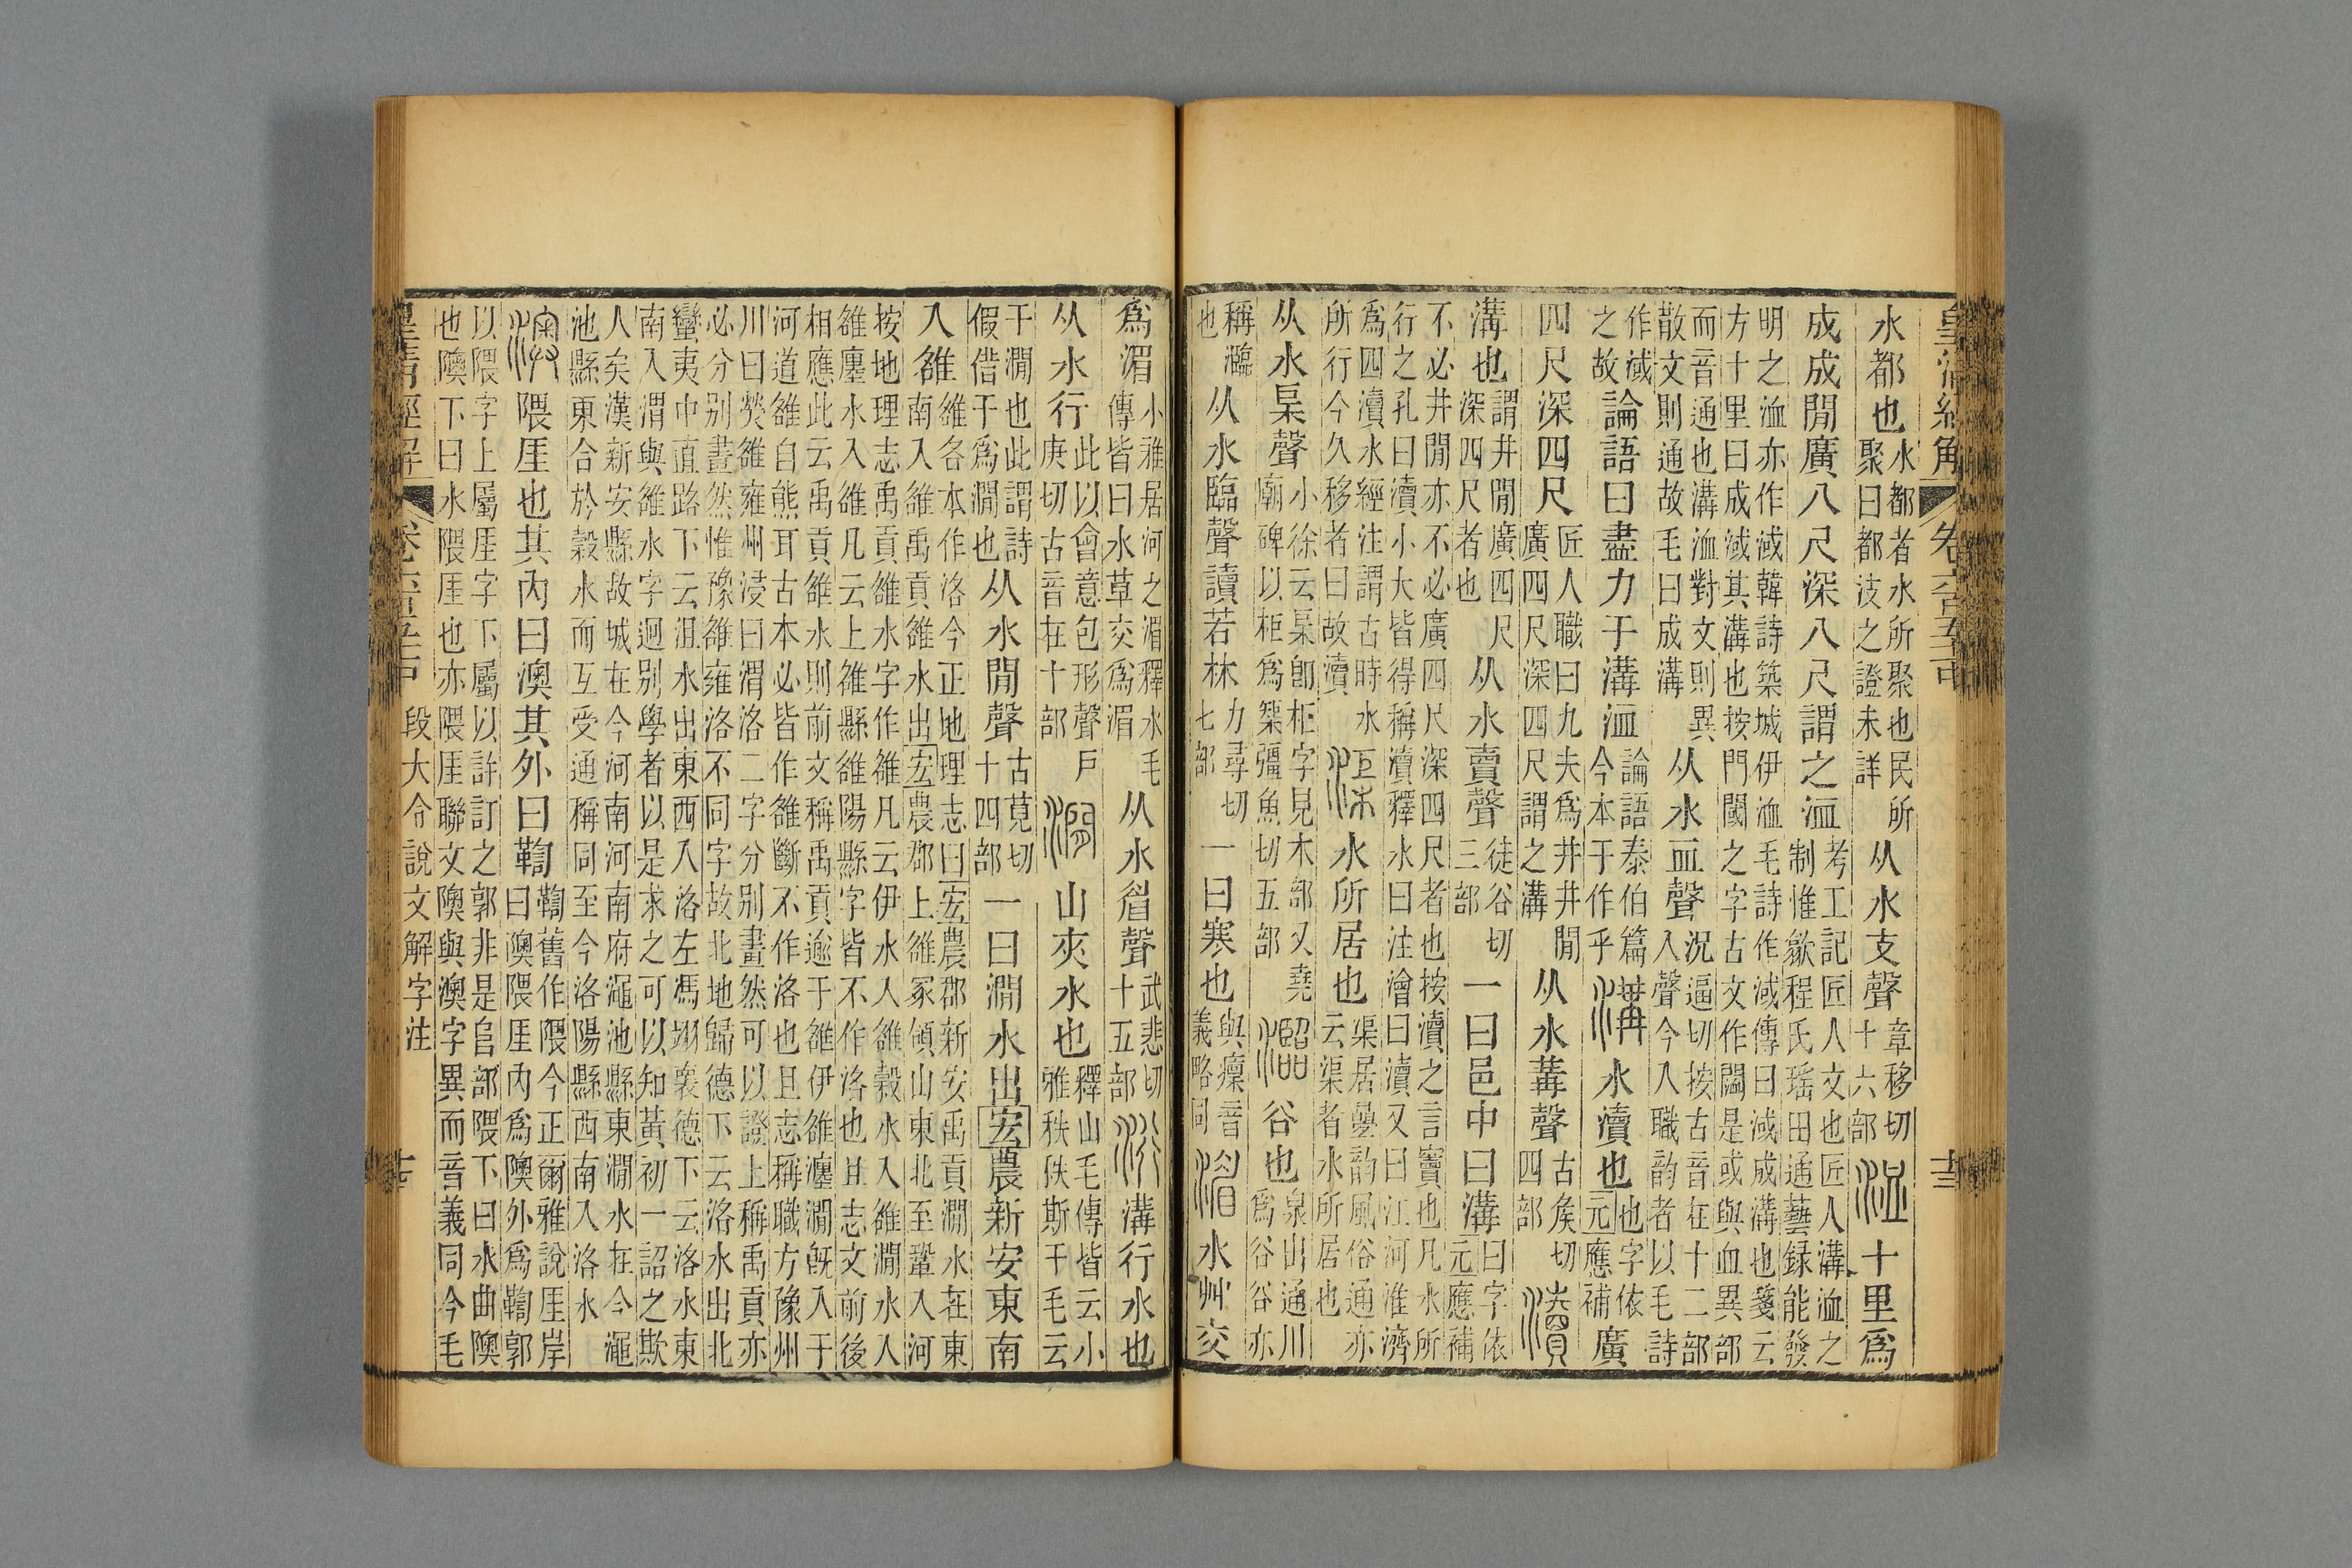 水都也水都者水所聚也民所聚曰都汥之證未詳从水支聲章移切十六部洫十里爲
成成閒廣八尺深八尺謂之洫考工記匠人文也匠人溝洫之制惟歙程氏瑶田通藝録能發
明之洫亦作淢韓詩築城伊洫毛詩作淢傳曰淢成溝也箋云方十里曰成淢其溝也按門閾之字古文作閾是或與血異部
而音通也溝洫對文則異散文則通故毛曰成溝从水血聲况逼切按古音在十二部入聲今人職韵者以毛詩
作淢之故論語曰盡力于溝洫論語泰伯篇今本于作乎溝水瀆也也字依元應補廣
四尺深四尺匠人職曰九夫爲井井閒廣四尺深四尺謂之溝从水冓聲古矦切四部瀆
溝也謂井閒廣四尺深四尺者也从水賣聲徒谷切三部一曰邑中曰溝曰字依元應補
不必井閒亦不必廣四尺深四尺者也按瀆之言竇也凡水所行之孔曰瀆小大皆得稱瀆釋水曰注澮曰瀆又曰江河淮濟
爲四瀆水經注謂古時水所行今久移者曰故瀆渠水所居也渠居曡韵風俗通亦云渠者水所居也
从水杲聲小徐云杲卽柜字見木部又堯廟碑以柜爲榘彊魚切五部瀶谷也泉出通川爲谷谷亦
稱瀶也从水臨聲讀若林力尋切七部一曰寒也與癛音義略同湄水艸交
爲湄小雅居河之湄釋水毛傳皆曰水草交爲湄从水眉聲武悲切十五部洐溝行水也
从水行此以會意包形聲戶庚切古音在十部澗山夾水也釋山毛傳皆云小雅秩秩斯干毛云
干澗也此謂詩假借干爲澗也从水閒聲古莧切十四部一曰澗水出宏農新安東南
入雒雒各本作洛今正地理志曰宏農郡新安禹貢澗水在東南入雒禹貢雒水出宏農郡上雒冢領山東北至鞏入河
按地理志禹貢雒水字作雒凡云伊水入雒榖水入雒澗水入雒瀍水入雒凡云上雒縣雒陽縣字皆不作洛也且志文前後
相應此云禹貢雒水則前文稱禹貢逾于雒伊雒瀍澗旣入于河道雒自熊耳古本必皆作雒斷不作洛也且志稱職方豫州
川曰熒雒雍州浸曰渭洛二字分別畫然可以證上稱禹貢亦必分别畫然惟豫雒雍洛不同字故北地歸德下云洛水出北
蠻夷中直路下云沮水出東西入洛左馮翊襄德下云洛水東南入渭與雒水字迥别學者以是求之可以知黃初一詔之欺
人矣漢新安縣故城在今河南河南府澠池縣東澗水在今澠池縣東合於榖水而互受通稱同至今洛陽縣西南入洛水
澳隈厓也其內曰澳其外曰鞫鞫舊作隈今正爾雅說厓岸曰澳隈厓內爲隩外爲鞫郭
以隈字上屬厓字下屬以許訂之郭非是𨸏部隈下曰水曲隩也隩下曰水隈厓也亦隈厓聯文隩與澳字異而音義同今毛
皇清經解 段大令說文解字注